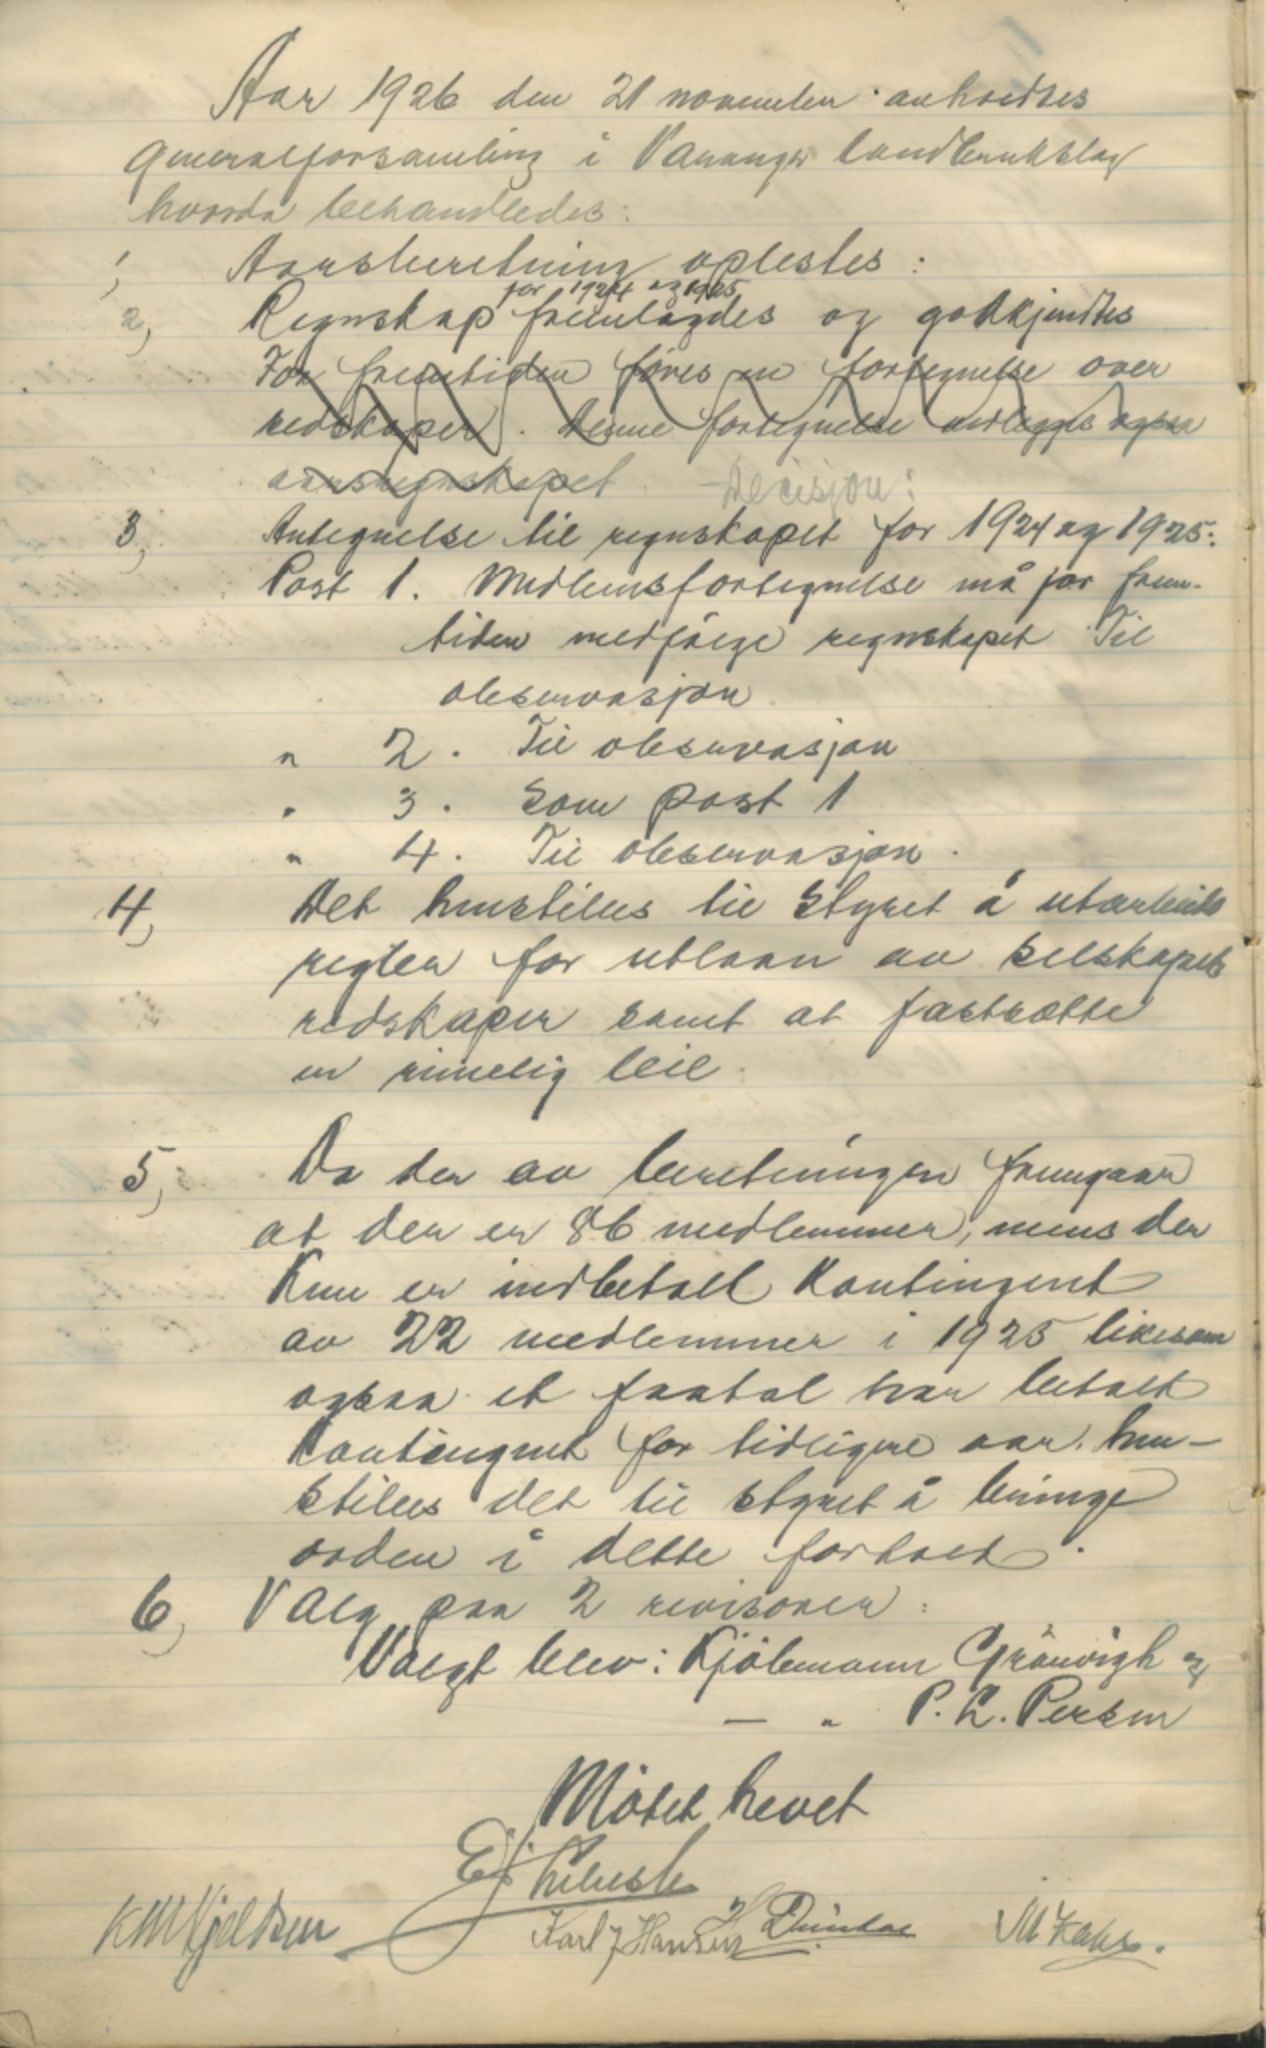 Aar 1926 den 21 november avholdtes
generalforsamling i Varanger landbrukslag
hvorda behandledes:
1, Aarsberetning oplestes:
2, Regnskap for 1924 og 1925 fremlagdes og godkjendtes
For fremtiden föres en fortegnelse over
redskaper. Denne fortegnelse vedlegges ogsaa
aarsregnskapet. Decisjon:
3, Antegnelse til regnskapet for 1924 og 1925:
Post 1. Medlemsfortegnelse må for frem-
tiden medfölge regnskapet Til
observasjon
" 2. Til observasjon
" 3. Som post 1
" 4. Til observasjon.
4, Det henstilles til Styret å utarbeide
regler for utlaan av selskapets
redskaper samt at fastsætte
en rimelig leie.
5, Da der av beretningen fremgaar
at der er 86 medlemmer, mens der
Kun er indbetalt Kontingent
av 22 medlemmer i 1925 likesom
ogsaa et faatal har betalt
Kontingent for tidligere aar. hen-
stilles det til styret å bringe
orden i dette forhold.
6, Valg paa 2 revisorer:
Valgt blev: Kjöbmann Grönvigh og
— " P. L. Persen
Mötet hevet
K M Kjeldsen Karl J Hansen